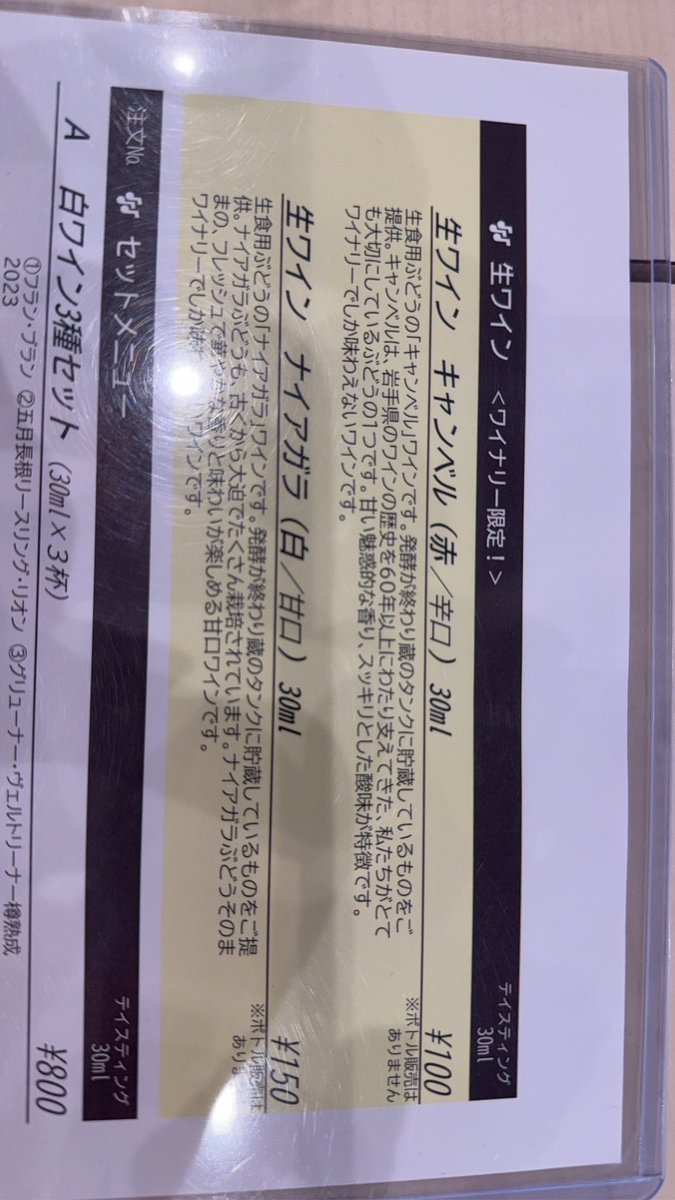 生ワイン <ワイナリー限定!>
テイスティング
30ml
生ワイン キャンベル (赤/辛口) 30ml ¥100
生食用ぶどうの「キャンベル」ワインです。発酵が終わり蔵のタンクに貯蔵しているものをご
提供。キャンベルは、岩手県のワインの歴史を60年以上にわたり支えてきた、私たちがとて
も大切にしているぶどうの1つです。甘い魅惑的な香り、スッキリとした酸味が特徴です。
ワイナリーでしか味わえないワインです。
※ボトル販売は
ありません
生ワイン ナイアガラ (白/甘口) 30ml ¥150
生食用ぶどうの「ナイアガラ」ワインです。発酵が終わり蔵のタンクに貯蔵しているものをご提
供。ナイアガラぶどうも、古くから大迫でたくさん栽培されています。ナイアガラぶどうそのま
まの、フレッシュで華やかな香りと味わいが楽しめる甘口ワインです。
ワイナリーでしか味 ワインです。
※ボトル販売は
あり
注文No. セットメニュー
テイスティング
30ml
A 白ワイン3種セット (30ml×3杯) ¥800
①フラン・ブラン ②五月長根リースリング・リオン ③グリューナー・ヴェルトリーナー樽熟成
2023